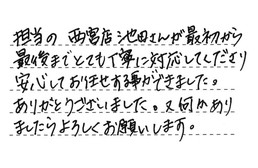 担当の 西宮店 池田さんが最初から
最後までとても丁寧に対応してくださり
安心してお任せする事ができました。
ありがとうございました。又何かあり
ましたらよろしくお願いします。